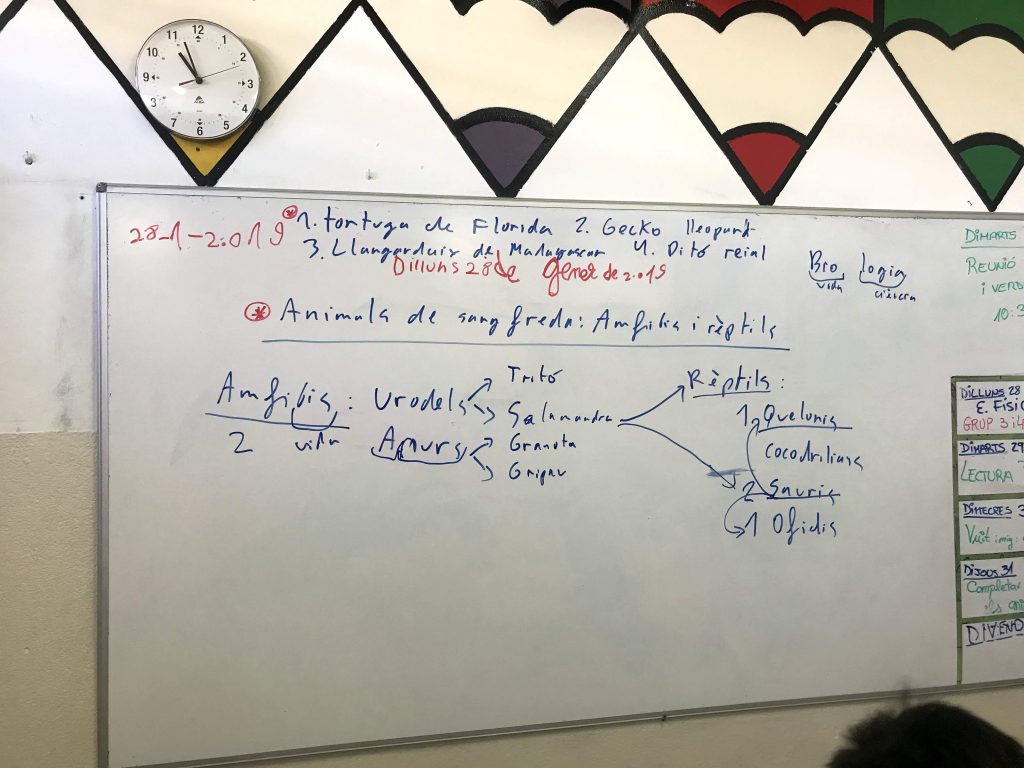 12
11 1
10 2
9 3
3 4
7 5
6
28-1-2019
1. tortuga de Florida 2. Gecko lleopard
3. Llangardaix de Madagascar 4. Pitó reial
Dilluns 28 de gener de 2.019
Bio logia
vida ciència
Animals de sang freda: Amfibis i rèptils
Amfibis:
2 vida
Urodels
Tritó
Salamandra
Anurs
Granota
Gripau
Rèptils:
1 Quelonis
Cocodrilians
2 Sauris
1 Ofidis
DIMARTS
REUNIÓ
I VERD
10:3
DILLUNS 28
E. FÍSI
GRUP 3 i 4
DIMARTS 29
LECTURA
DIMECRES 3
Vuit i mig:
DIJOUS 31
Completar
els ani
DIVEND